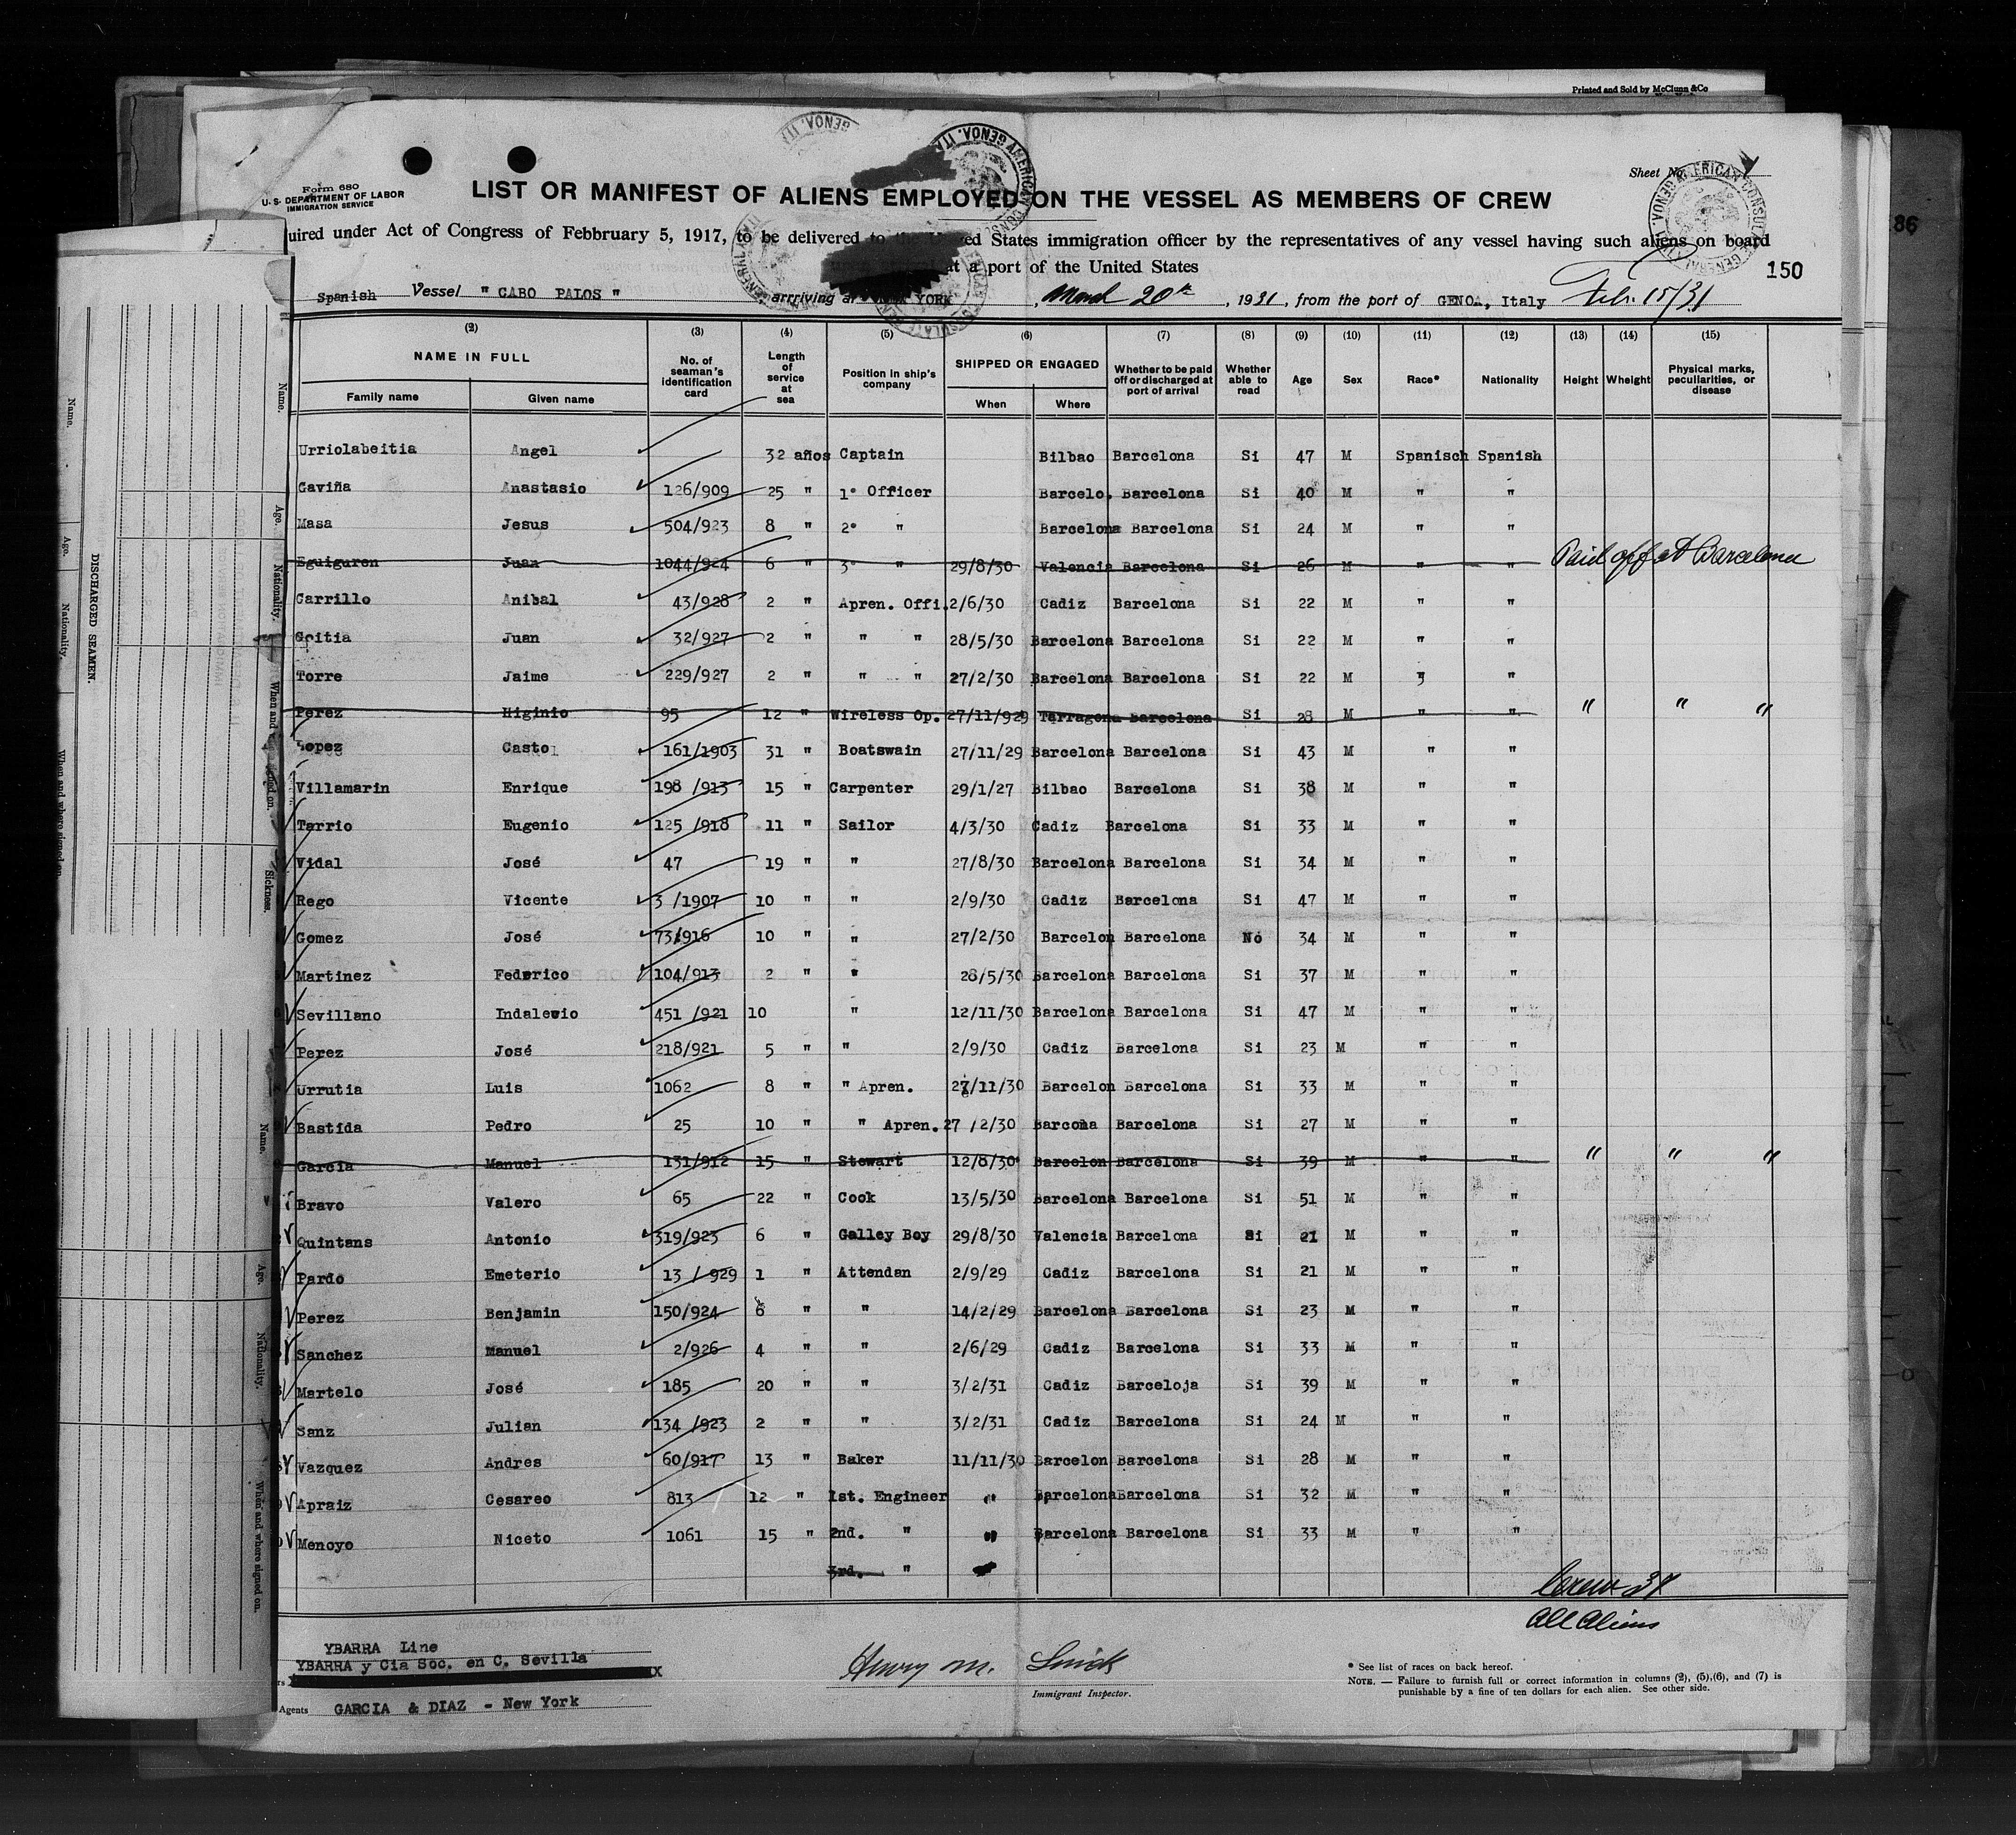 Printed and Sold by McClunn &Co
Sheet No.
Form 680
U. S. DEPARTMENT OF LABOR
IMMIGRATION SERVICE
LIST OR MANIFEST OF ALIENS EMPLOYED ON THE VESSEL AS MEMBERS OF CREW
uired under Act of Congress of Febbruary 5, 1917, to be delivered to the United States immigration officer by the representatives of any vessel having such aliens on board
at a port of the United States
150
86
Spanish Vessel " CABO PALOS " arrriving at NEW YORK, March 20th, 1931, from the port of GENOA, Italy Feb. 15/31
(2) (3) (4) (5) (6) (7) (8) (9) (10) (11) (12) (13) (14) (15)
NAME IN FULL No. of seaman's identification card Length of service at sea Position in ship's company SHIPPED OR ENGAGED Whether to be paid off or discharged at port of arrival Whether able to read Age Sex Race* Nationality Height Wheight Physical marks, peculiarities, or disease
Family name Given name When Where
Urriolabeitia Angel 32 años Captain Bilbao Barcelona Si 47 M Spanisch Spanish
Gaviña Anastasio 126/909 25 " 1º Officer Barcelo. Barcelona Si 40 M " "
Masa Jesus 504/923 8 " 2º " Barcelona Barcelona Si 24 M " "
Eguiguren Juan 1044/924 6 " 3º " 29/8/30 Valencia Barcelona Si 26 M " " Paid off at Barcelona
Carrillo Anibal 43/928 2 " Apren. Offi. 2/6/30 Cadiz Barcelona Si 22 M " "
Goitia Juan 32/927 2 " " " 28/5/30 Barcelona Barcelona Si 22 M " "
Torre Jaime 229/927 2 " " " 27/2/30 Barcelona Barcelona Si 22 M " "
Perez Higinio 95 12 " Wireless Op. 27/11/929 Tarragona Barcelona Si 28 M " " " " "
Lopez Casto 161/1903 31 " Boatswain 27/11/29 Barcelona Barcelona Si 43 M " "
Villamarin Enrique 198 /913 15 " Carpenter 29/1/27 Bilbao Barcelona Si 38 M " "
Tarrio Eugenio 125 /918 11 " Sailor 4/3/30 Cadiz Barcelona Si 33 M " "
Vidal José 47 19 " " 27/8/30 Barcelona Barcelona Si 34 M " "
Rego Vicente 3 /1907 10 " " 2/9/30 Cadiz Barcelona Si 47 M " "
Gomez José 73/916 10 " " 27/2/30 Barcelon Barcelona No 34 M " "
Martinez Federico 104/913 2 " " 28/5/30 Barcelona Barcelona Si 37 M " "
Sevillano Indalecio 451 /921 10 " 12/11/30 Barcelona Barcelona Si 47 M " "
Perez José 218/921 5 " " 2/9/30 Cadiz Barcelona Si 23 M " "
Urrutia Luis 1062 8 " " Apren. 27/11/30 Barcelon Barcelona Si 33 M " "
Bastida Pedro 25 10 " " Apren. 27 /2/30 Barcona Barcelona Si 27 M " "
Garcia Manuel 131/912 15 " Stewart 12/8/30 Barcelon Barcelona Si 39 M " " " " "
Bravo Valero 65 22 " Cook 13/5/30 Barcelona Barcelona Si 51 M " "
Quintans Antonio 319/923 6 " Galley Boy 29/8/30 Valencia Barcelona Si 21 M " "
Pardo Emeterio 13 / 929 1 " Attendan 2/9/29 Cadiz Barcelona Si 21 M " "
Perez Benjamin 150/924 6 " " 14/2/29 Barcelona Barcelona Si 23 M " "
Sanchez Manuel 2/926 4 " " 2/6/29 Cadiz Barcelona Si 33 M " "
Martelo José 185 20 " " 3/2/31 Cadiz Barceloja Si 39 M " "
Sanz Julian 134 /923 2 " " 3/2/31 Cadiz Barcelona Si 24 M " "
Vazquez Andres 60/917 13 " Baker 11/11/30 Barcelon Barcelona Si 28 M " "
Apraiz Cesareo 813 12 " 1st. Engineer " Barcelona Barcelona Si 32 M " "
Menoyo Niceto 1061 15 " 2nd. " Barcelona Barcelona Si 33 M " "
3rd. "
Crew 37
All Aliens
YBARRA Line
YBARRA y Cia Soc. en C. Sevilla
Agents GARCIA & DIAZ - New York
Henry M.
Immigrant Inspector.
* See list of races on back hereof.
NOTE. — Failure to furnish full or correct information in columns (2), (5), (6), and (7) is
punishable by a fine of ten dollars for each alien. See other side.
DISCHARGED SEAMEN.
Name.
Age.
Nationality.
When and where signed on.
Name.
Age.
Nationality.
When and where signed on.
Sickness.
Name.
Age.
Nationality.
When and where signed on.